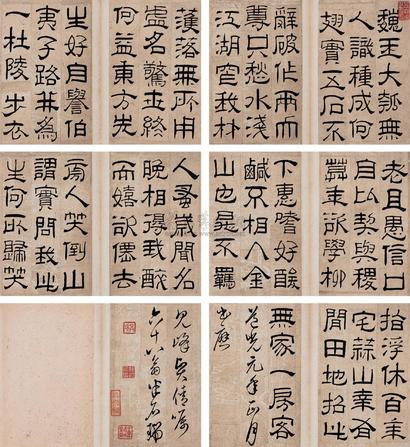 魏王大瓠無
人識種成何
翅實五石不
辭破作兩大
尊只愁水淺
江湖窄我材
濩落無所用
虛名驚世終
何益東方先
生好自譽伯
夷子路并為
一杜陵布衣
老且愚信口
自比契與稷
暮年欲學柳
下惠嗜好酸
鹹不相入金
山也是不羈
人蚤歲聞名
晚相得我醉
而嬉欲僊去
旁人笑倒山
謂實問我此
生何所歸笑
指浮休百年
宅蒜山幸有
閒田地招此
無家一房客
道光元年月
書應
見峰屬
六十八翁